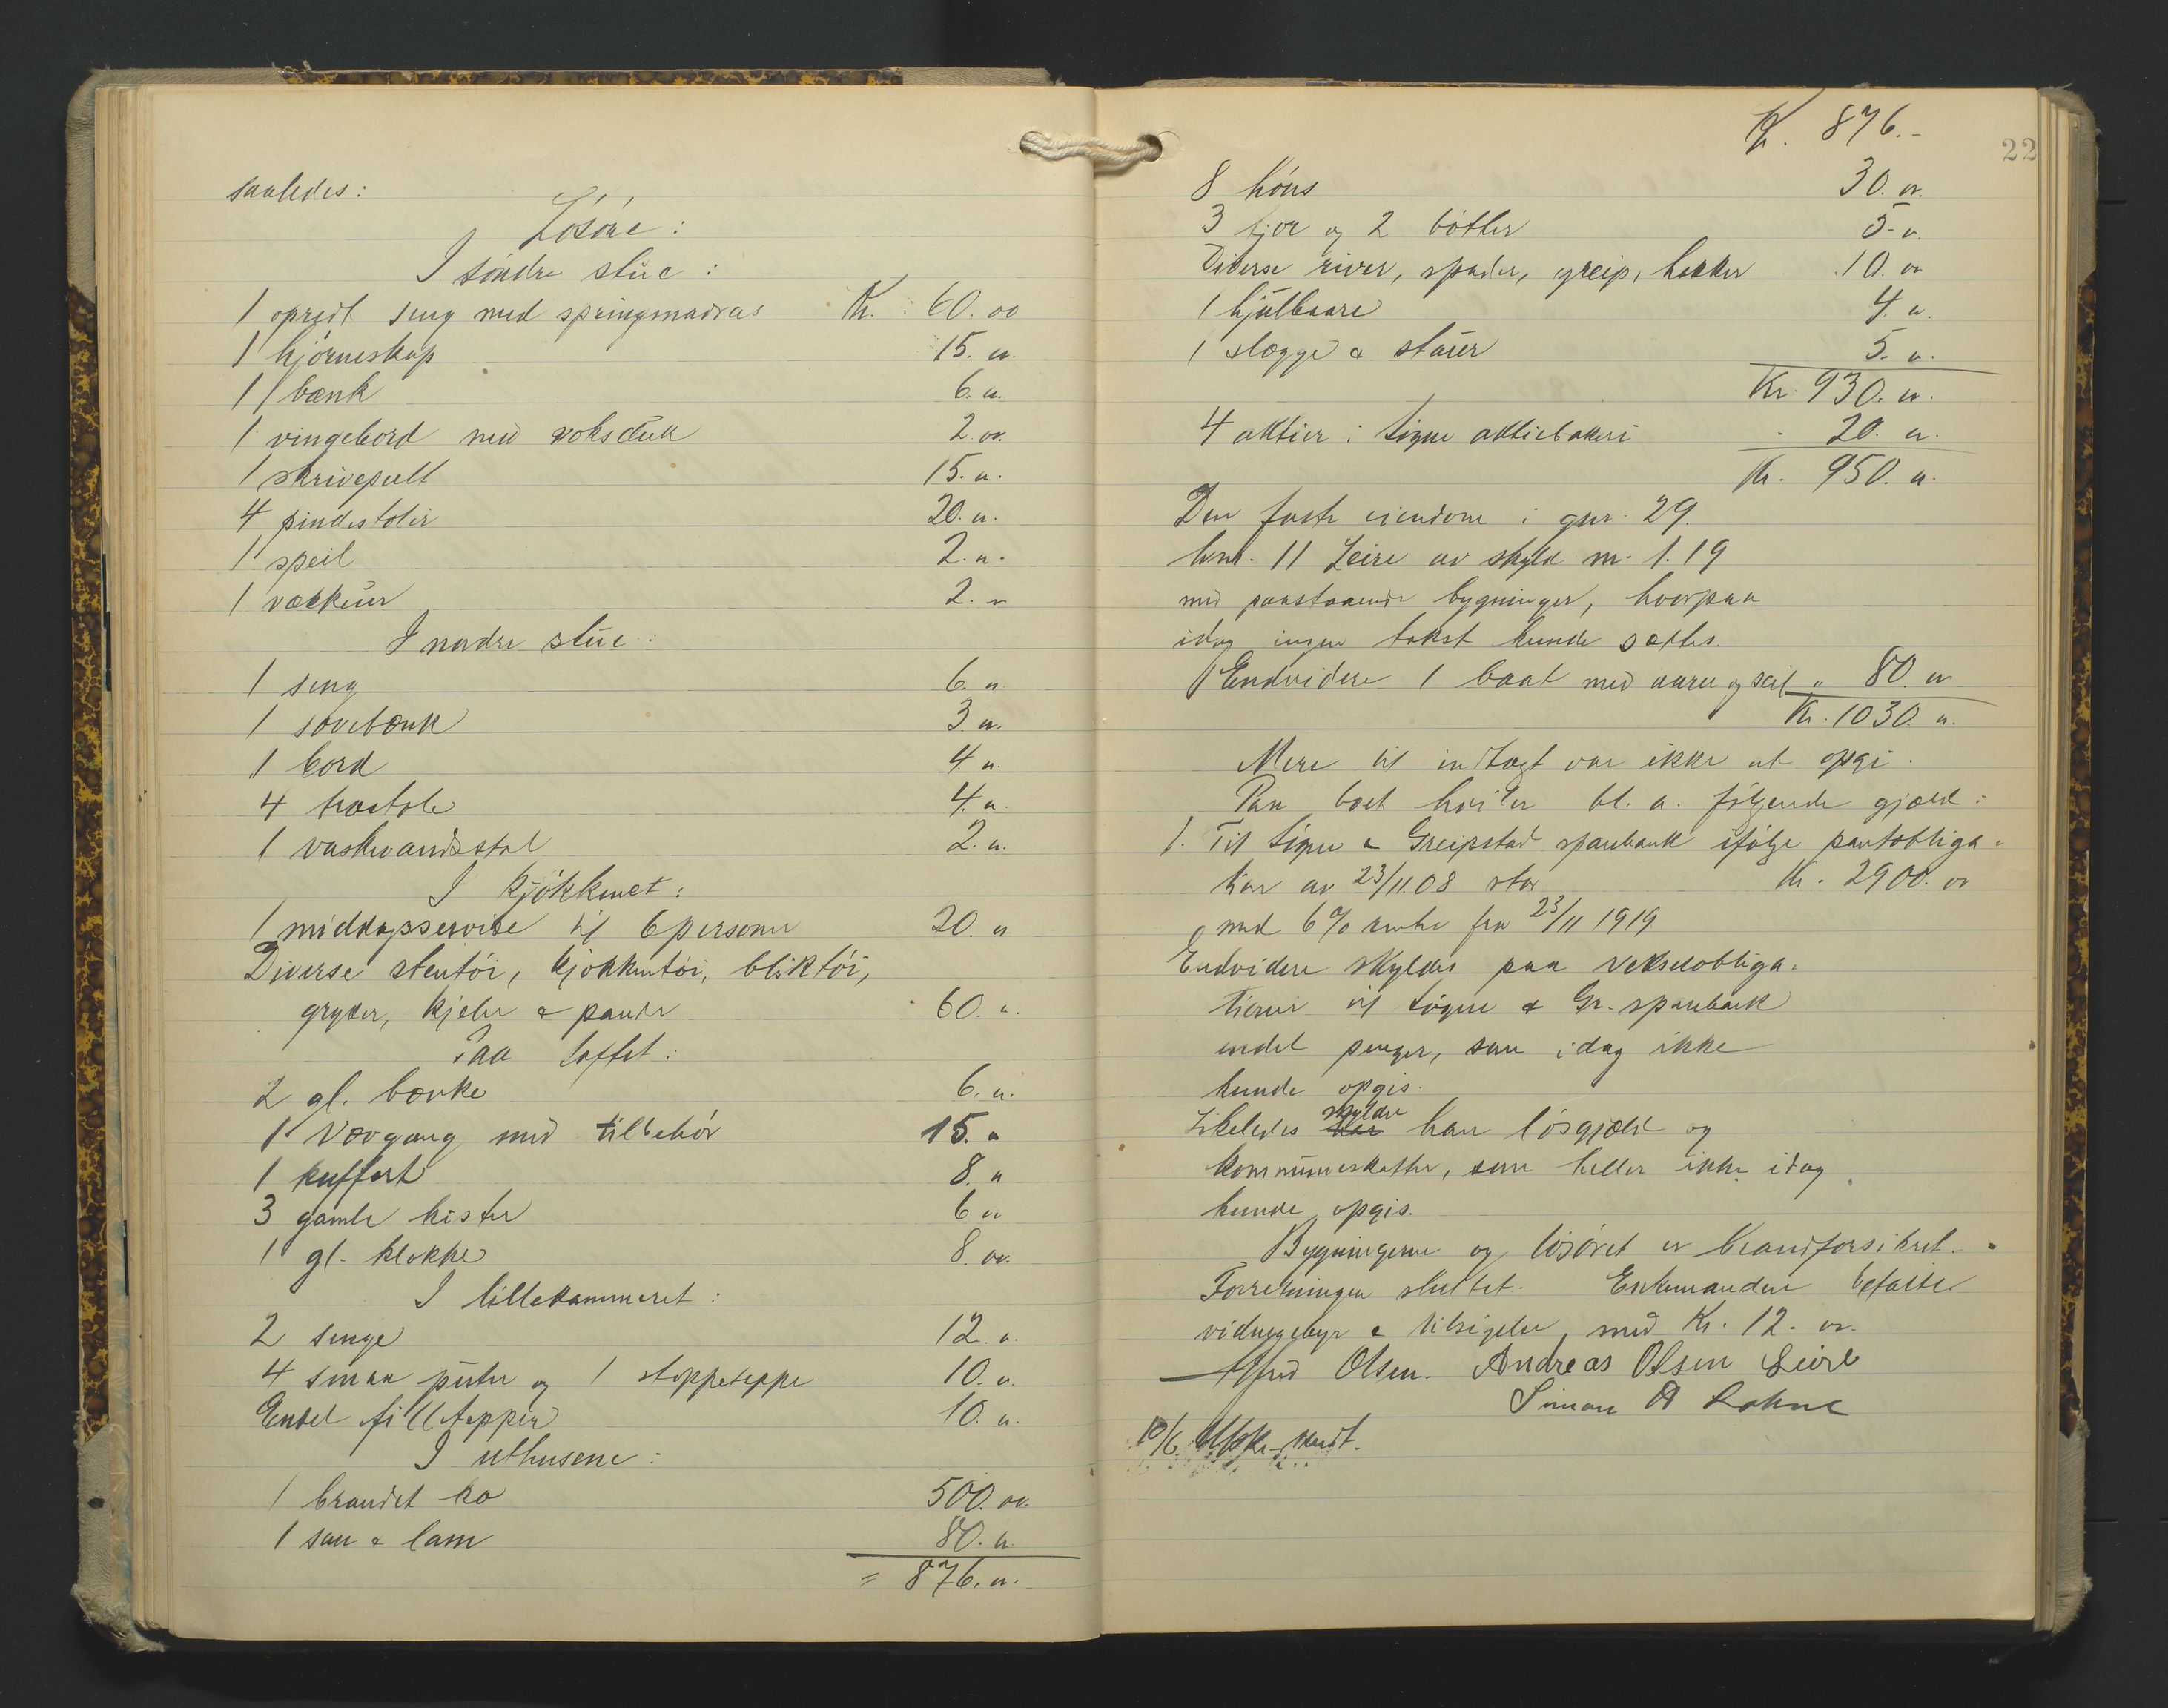 saaledes:
Lösöre:
I söndre stue:
1 opredt seng med springmadras Kr. 60.00
1 hjörneskap 15.00
1 bænk 6.00
1 vingebord med voksduk 2.00
1 skrivepult 15.00
4 pindestoler 20.00
1 speil 2.00
1 vækkeur 2.00
I nordre stue:
1 seng 6.00
1 sovebænk 3.00
1 bord 4.00
4 træstole 4.00
1 vaskevandsstol 2.00
I kjökkenet:
1 middagsservise til 6 personer 20.00
Diverse stentöi, kjökkentöi, bliktöi,
gryter, kjeler & pander 60.00
Paa loftet:
2 gl. bænke 6.00
1 Vævgang med tilbehör 15.00
1 kuffert 8.00
3 gamle kister 6.00
1 gl. klokke 8.00
I lillekammeret:
2 senge 12.00
4 smaa puter og 1 stoppeteppe 10.00
Endel filletepper 10.00
I uthusene:
1 brandet ko 500.00
1 sau & lam 80.00
= 876.00
Kr. 876.-
22
8 höns 30.00
3 tjor og 2 bötter 5.00
Diverse river, spader, greip, hakker 10.00
1 hjulbaare 4.00
1 slægge & stauer 5.00
Kr. 930.00
4 aktier i Sögne aktiebakeri - 20.00
Kr. 950.00
Den faste eiendom i gnr. 29.
bnr. 11 Leire av skyld m. 1.19
med paastaaende bygninger, hvorpaa
idag ingen takst kunde sættes.
Endvidere 1 baat med aarer og seil " 80.00
Kr. 1030.00
Mere til indtægt var ikke at opgi.
Paa boet hviler bl. a. fölgende gjæld:
1. Til Sögne & Greipstad sparebank ifölge pantobliga-
tion av 23/11.08 stor Kr. 2900.00
med 6% rente fra 23/11 1919
Endvidere skyldes paa vekselobliga-
tioner til Sögne & Gr. sparebank
endel penger, som idag ikke
kunde opgis.
Likeledes skylder han lösgjæld og
kommuneskatter, som heller ikke idag
kunde opgis.
Bygningerne og lösöret er brandforsikret.
Forretningen sluttet. Enkemanden betalte
vidnegebyr & tilsigelse, med Kr. 12.00
Alfred Olsen. Andreas Olsen Leire
Simon A Lohne
10/6.